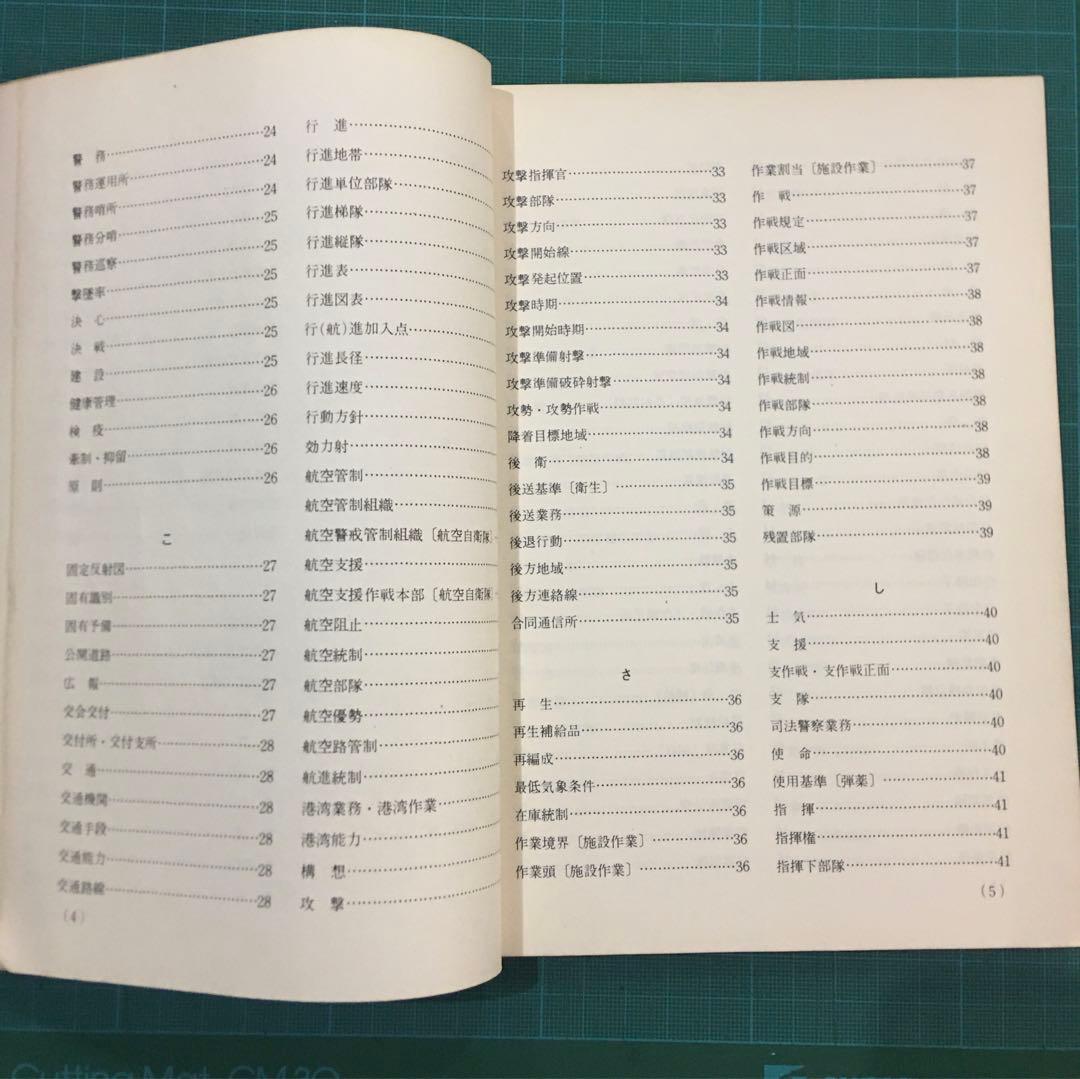 警務……24
警務運用所……24
警務哨所……24
警務分哨……25
警務巡察……25
撃墜率……25
決心……25
決戦……25
建設……25
健康管理……26
検疫……26
牽制・抑留……26
原則……26
こ
固定反射図……27
固有識別……27
固有予備……27
公開道路……27
広報……27
交会交付……27
交付所・交付支所……28
交通……28
交通機関……28
交通手段……28
交通能力……28
交通路線……28
(4)
行進……
行進地帯……
行進単位部隊……
行進梯隊……
行進縦隊……
行進表……
行進図表……
行(航)進加入点……
行進長径……
行進速度……
行動方針……
効力射……
航空管制……
航空管制組織……
航空警戒管制組織〔航空自衛隊〕
航空支援……
航空支援作戦本部〔航空自衛隊〕
航空阻止……
航空統制……
航空部隊……
航空優勢……
航空路管制……
航進統制……
港湾業務・港湾作業……
港湾能力……
構想……
攻撃……
攻撃指揮官……33
攻撃部隊……33
攻撃方向……33
攻撃開始線……33
攻撃発起位置……33
攻撃時期……34
攻撃開始時期……34
攻撃準備射撃……34
攻撃準備破砕射撃……34
攻勢・攻勢作戦……34
降着目標地域……34
後衛……34
後送基準〔衛生〕……35
後送業務……35
後退行動……35
後方地域……35
後方連絡線……35
合同通信所……35
さ
再生……36
再生補給品……36
再編成……36
最低気象条件……36
在庫統制……36
作業境界〔施設作業〕……36
作業頭〔施設作業〕……36
作業割当〔施設作業〕……37
作戦……37
作戦規定……37
作戦区域……37
作戦正面……37
作戦情報……38
作戦図……38
作戦地域……38
作戦統制……38
作戦部隊……38
作戦方向……38
作戦目的……38
作戦目標……39
策源……39
残置部隊……39
し
士気……40
支援……40
支作戦・支作戦正面……40
支隊……40
司法警察業務……40
使命……40
使用基準〔弾薬〕……41
指揮……41
指揮権……41
指揮下部隊……41
(5)